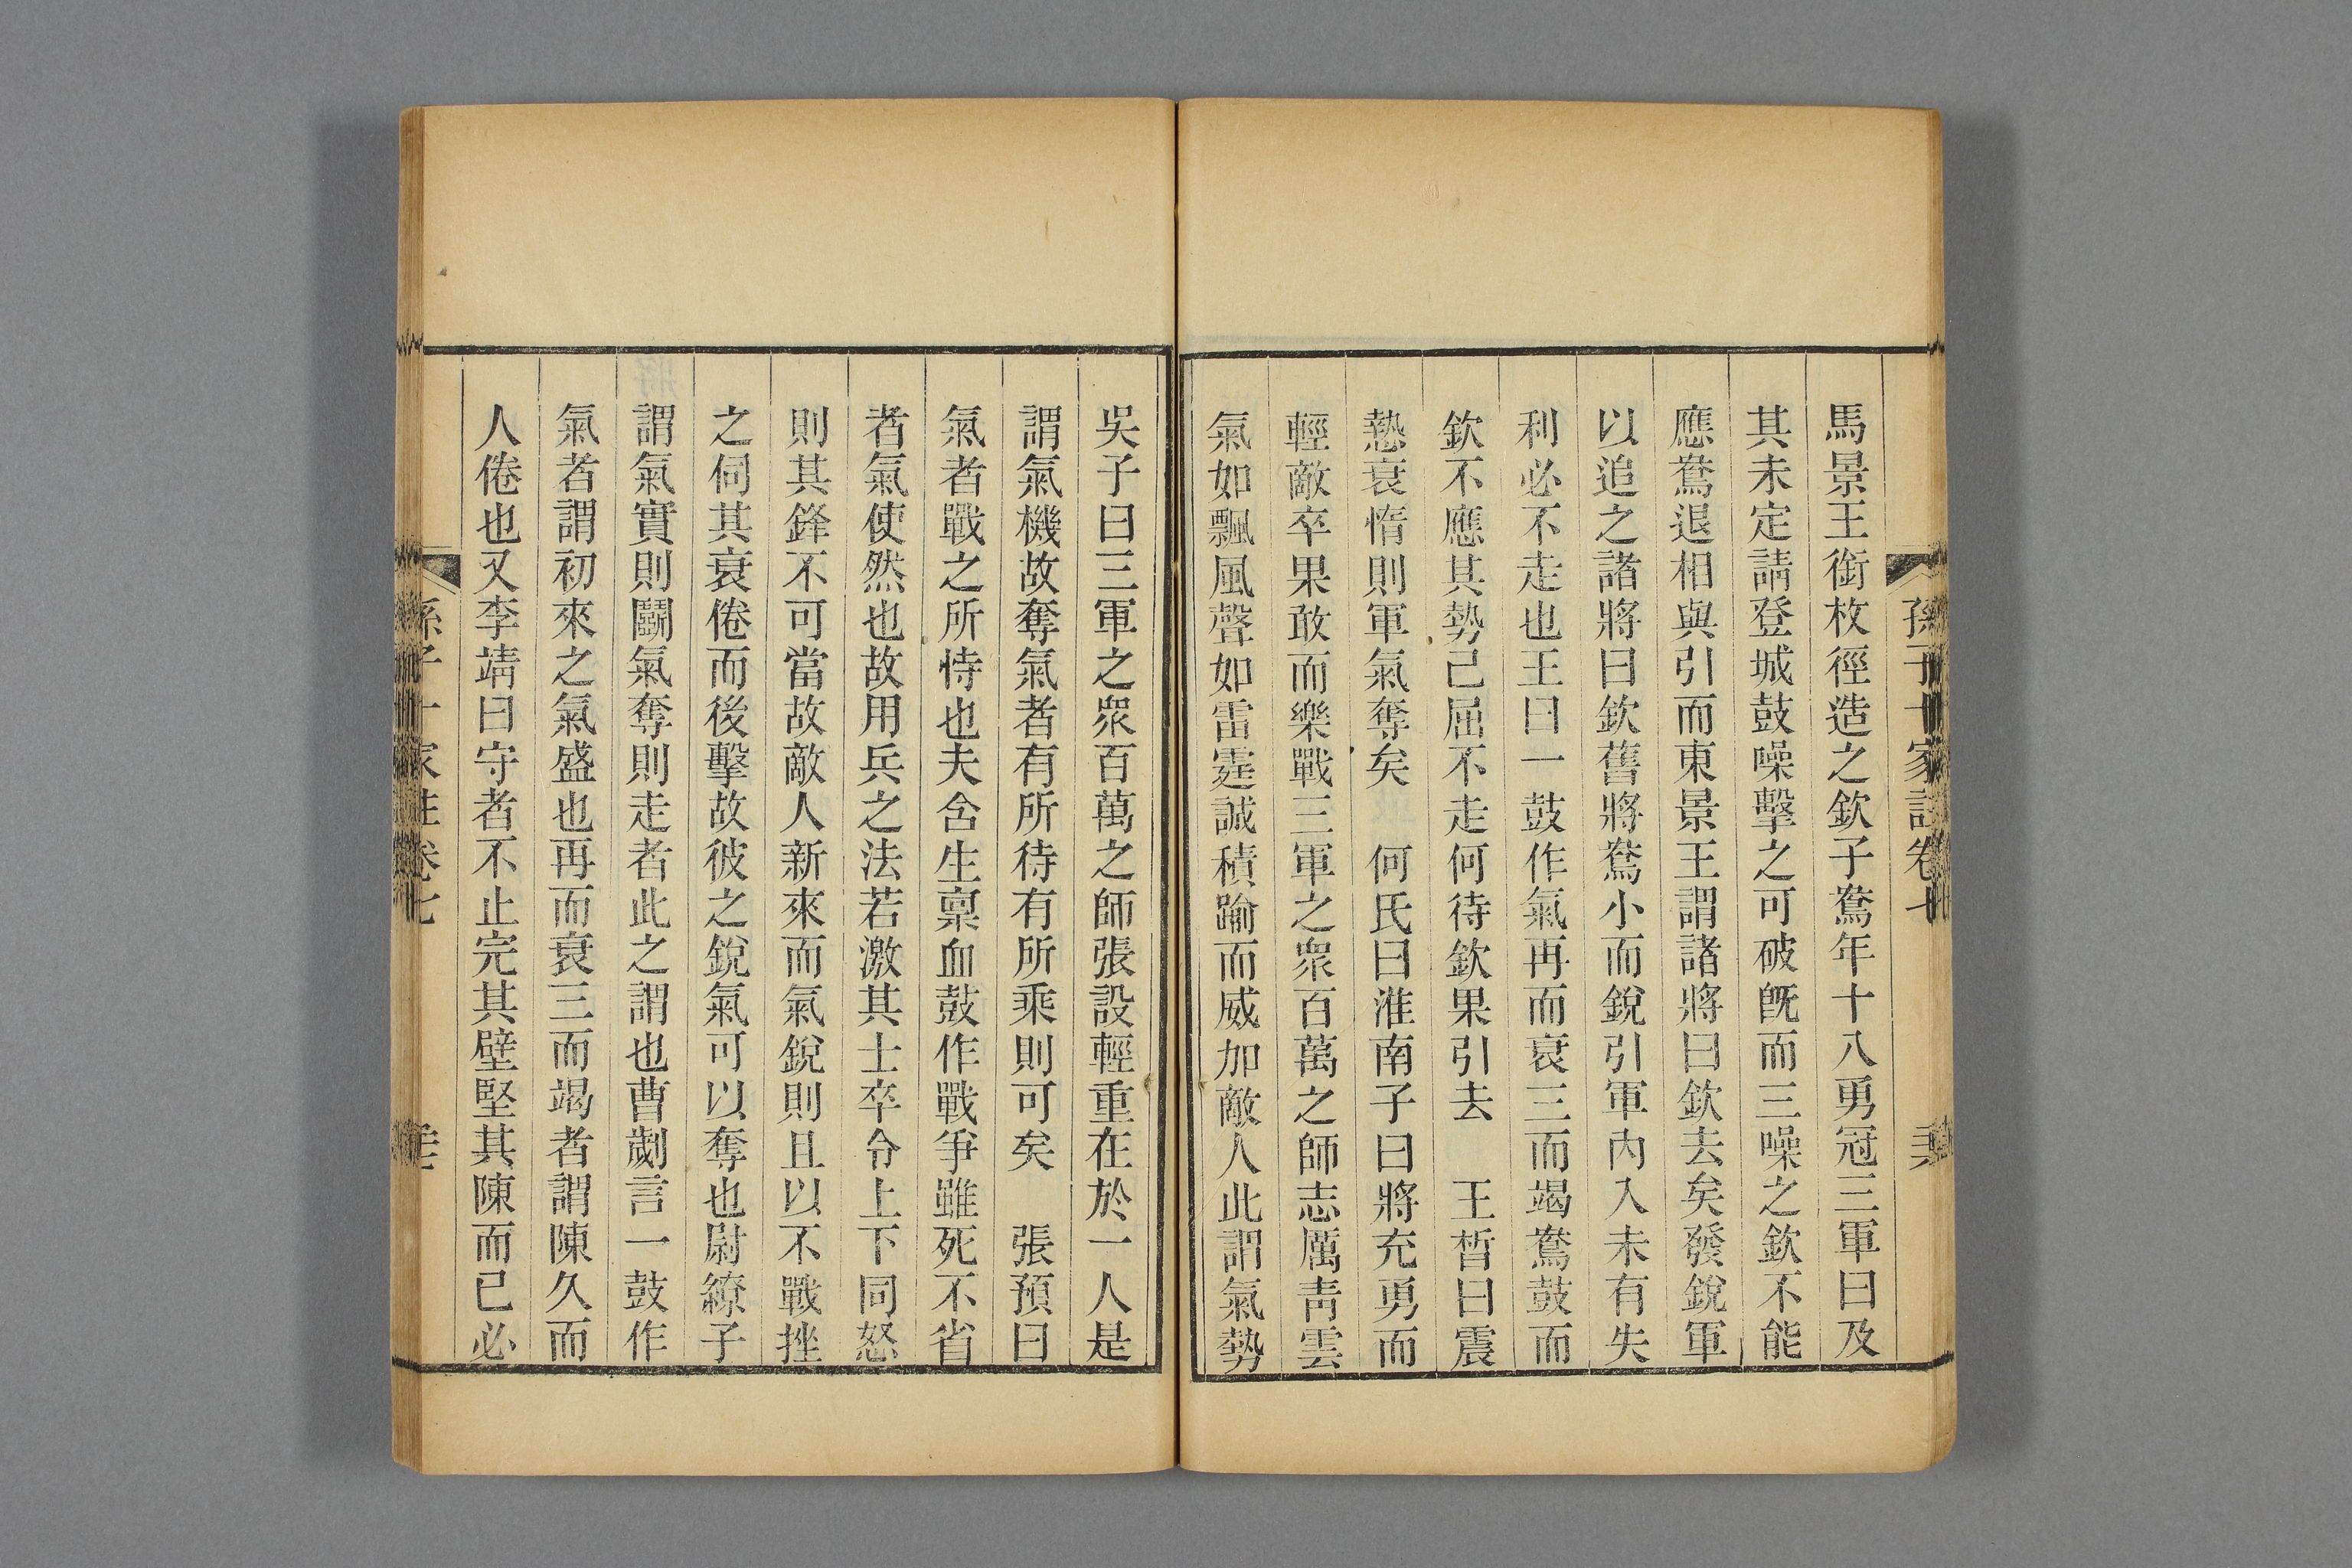 孫子十家註卷七
馬景王銜枚徑造之欽子鴦年十八勇冠三軍曰及
其未定請登城鼓噪擊之可破旣而三噪之欽不能
應鴦退相與引而東景王謂諸將曰欽去矣發銳軍
以追之諸將曰欽舊將鴦小而銳引軍內入未有失
利必不走也王曰一鼓作氣再而衰三而竭鴦鼓而
欽不應其勢已屈不走何待欽果引去　王晳曰震
懃衰惰則軍氣奪矣　何氏曰淮南子曰將充勇而
輕敵卒果敢而樂戰三軍之衆百萬之師志厲靑雲
氣如飄風聲如雷霆誠積踰而威加敵人此謂氣勢
吳子曰三軍之衆百萬之師張設輕重在於一人是
謂氣機故奪氣者有所待有所乘則可矣　張預曰
氣者戰之所恃也夫含生稟血鼓作戰爭雖死不省
者氣使然也故用兵之法若激其士卒令上下同怒
則其鋒不可當故敵人新來而氣銳則且以不戰挫
之伺其衰倦而後擊故彼之銳氣可以奪也尉繚子
謂氣實則鬭氣奪則走者此之謂也曹劌言一鼓作
氣者謂初來之氣盛也再而衰三而竭者謂陳久而
人倦也又李靖曰守者不止完其壁堅其陳而已必
孫子十家註卷七